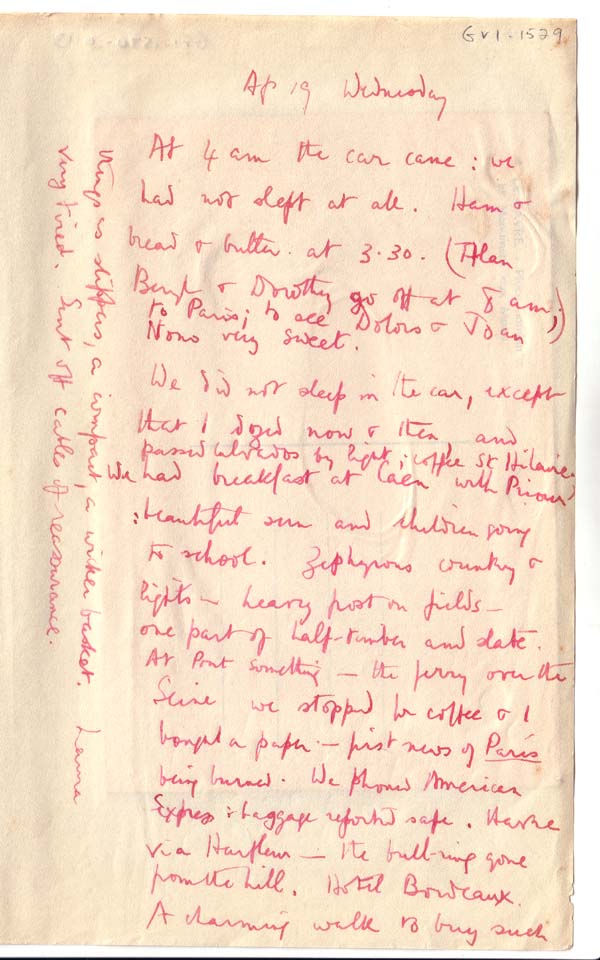 GVI-1529
Ap 19 Wednesday
At 4 am the car came: we
had not slept at all. Ham &
bread & butter at 3.30. (Alan
Benzl & Dorothy go off at 8 am;
to Paris; to see Dolors & Joan)
Nono very sweet.
We did not sleep in the car, except
that I dozed now & then, and
passed by light; coffee St Hilaire
We had breakfast at Caen with Prieur
: beautiful sun and children going
to school. Zephyrous country &
lights – heavy frost on fields –
one part of half-timber and slate.
At Pont something – the ferry over the
Seine we stopped for coffee & I
bought a paper – first news of Paris
being burned. We phoned American
Express : baggage reported safe. Havre
via Harfleur – the bull-ring gone
from the hill. Hotel Bordeaux.
A charming walk to buy such
things as slippers, a compact, a wicker basket.
very tired. Sent off cables of reassurance.